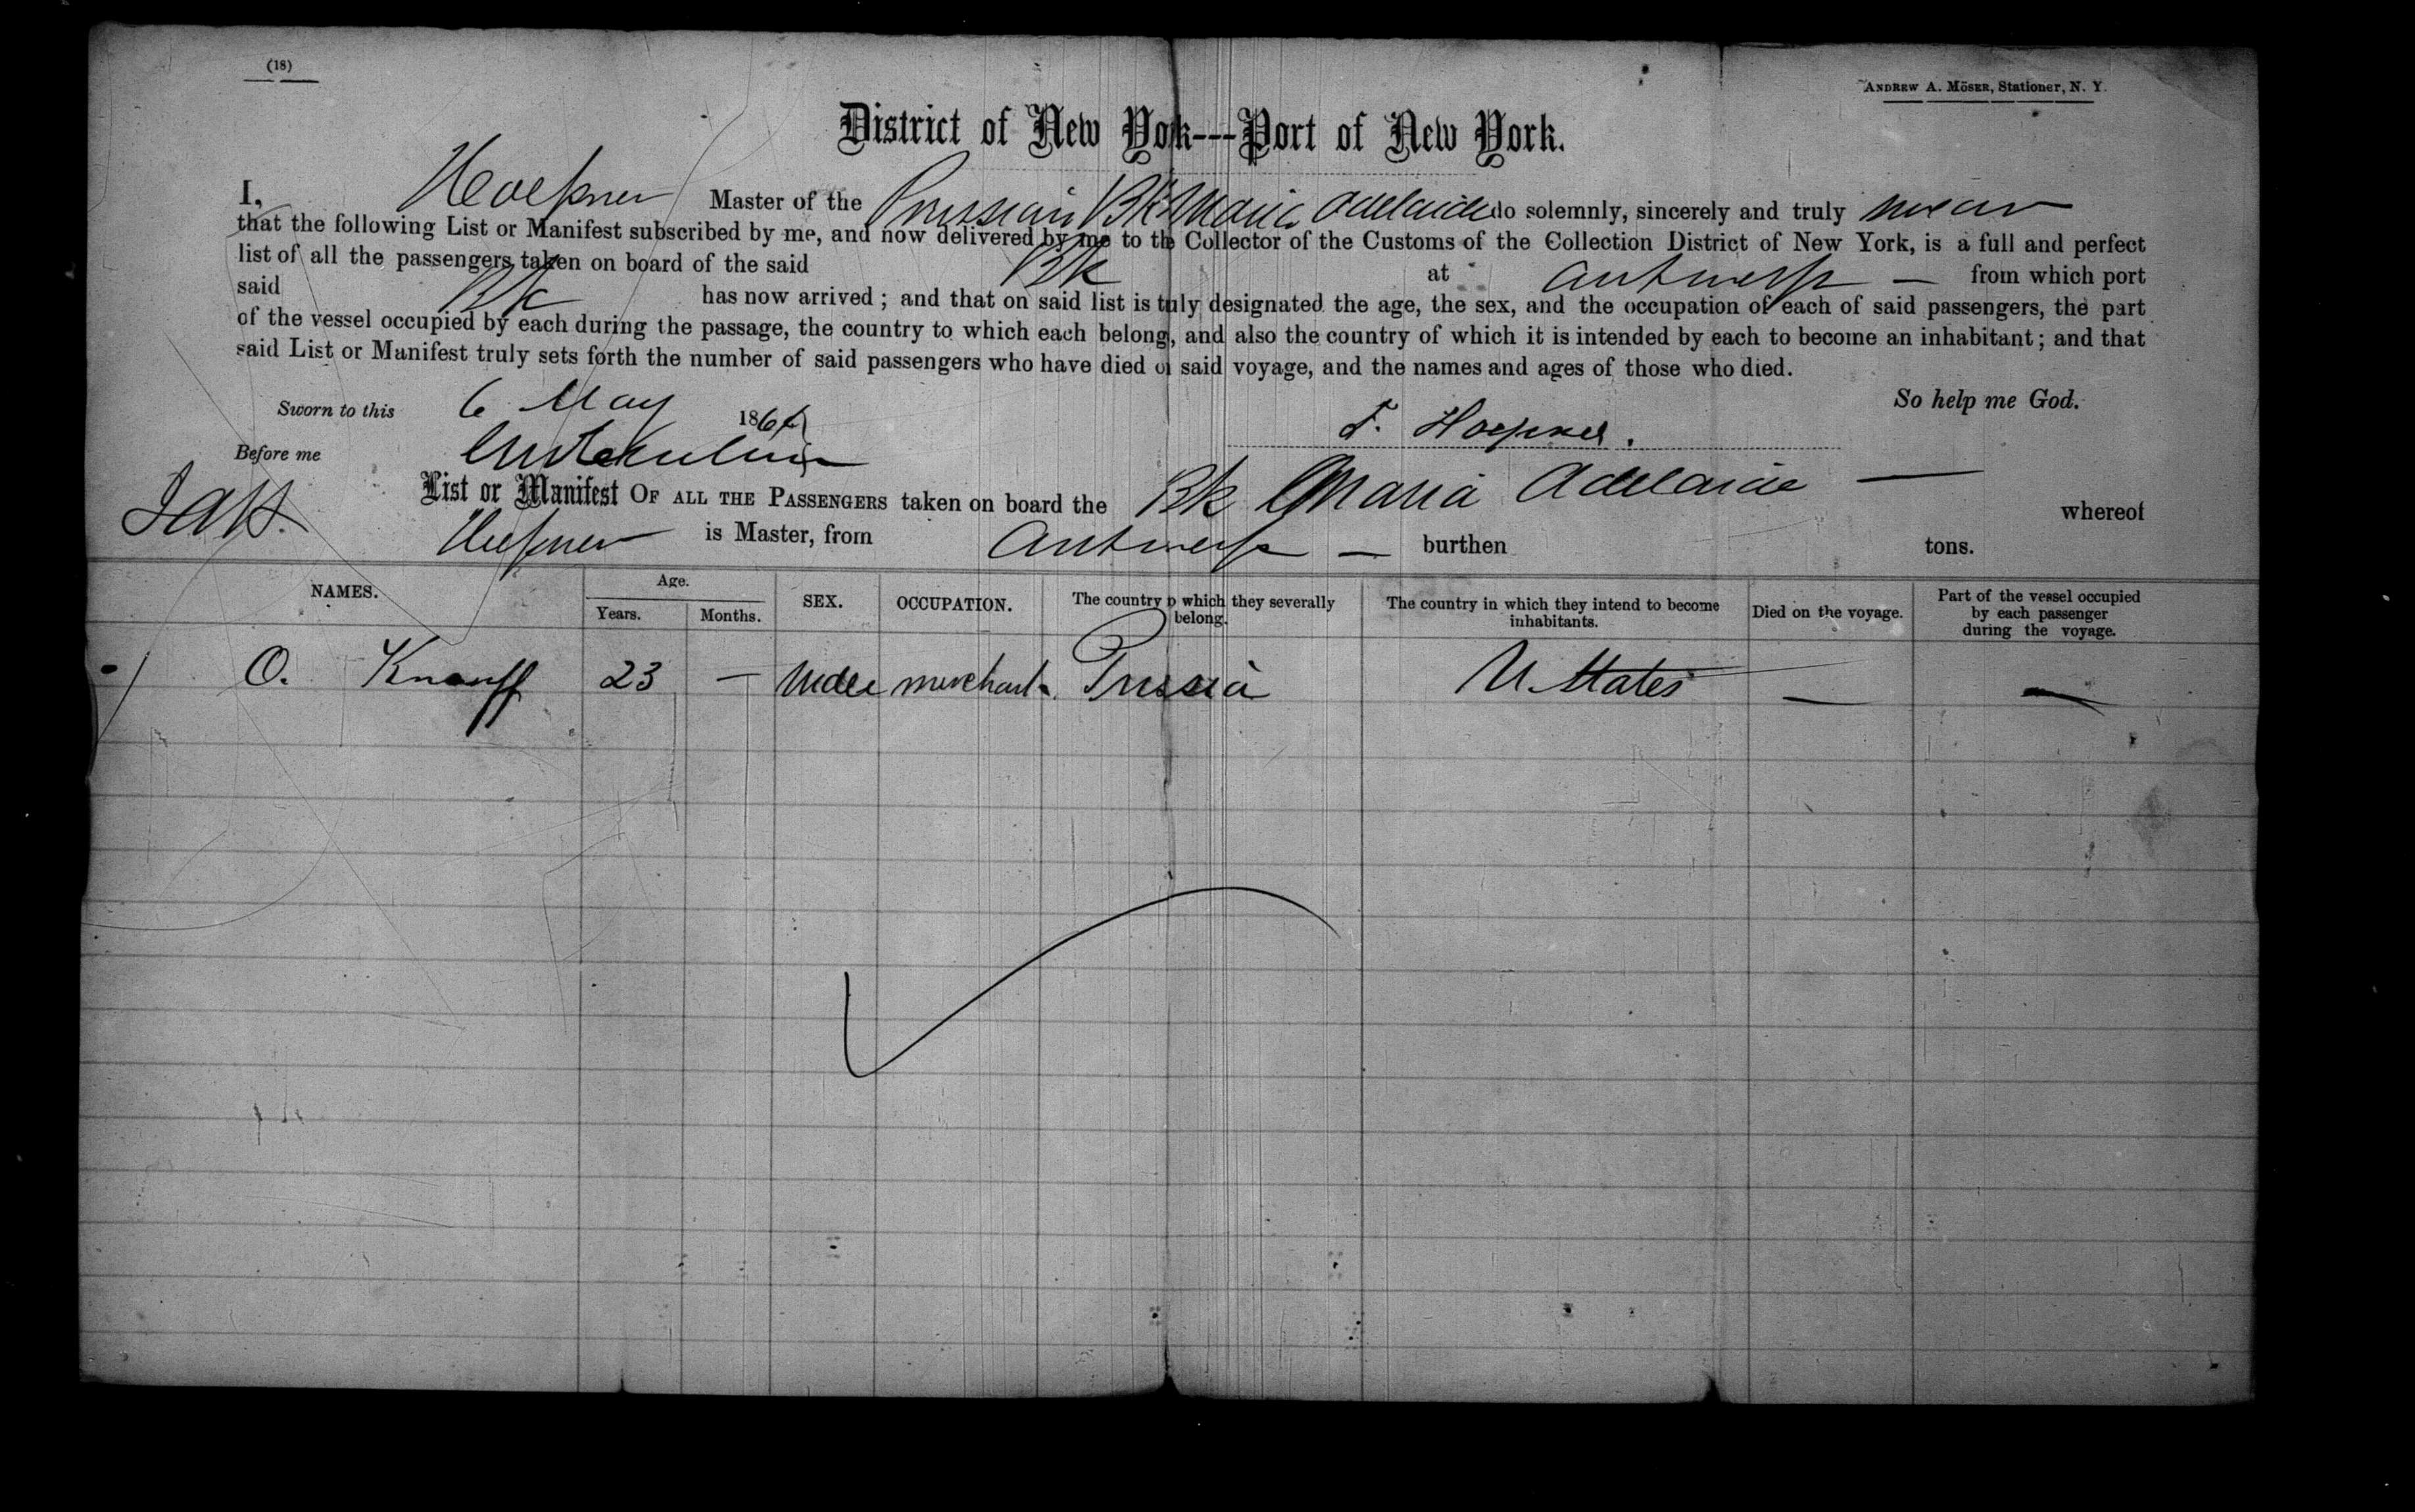 (18)
ANDREW A. MÖSER, Stationer, N. Y.
District of New Yok---Port of New York.
I, Hoepner Master of the Prussian Bk Maria Adelaide do solemnly, sincerely and truly swear
that the following List or Manifest subscribed by me, and now delivered by me to the Collector of the Customs of the Collection District of New York, is a full and perfect
list of all the passengers taken on board of the said Bk at Antwerp — from which port
said Bk has now arrived; and that on said list is tuly designated the age, the sex, and the occupation of each of said passengers, the part
of the vessel occupied by each during the passage, the country to which each belong, and also the country of which it is intended by each to become an inhabitant; and that
said List or Manifest truly sets forth the number of said passengers who have died on said voyage, and the names and ages of those who died.
So help me God.
Sworn to this 6 May 186
F. Hoepner.
Before me
List or Manifest OF ALL THE PASSENGERS taken on board the Bk Maria Adelaide — whereof
Hoepner is Master, from Antwerp — burthen tons.
NAMES. Age. Years. Months. SEX. OCCUPATION. The country to which they severally belong. The country in which they intend to become inhabitants. Died on the voyage. Part of the vessel occupied by each passenger during the voyage.
O. Knauff 23 — Male merchant Prussia U. States — —